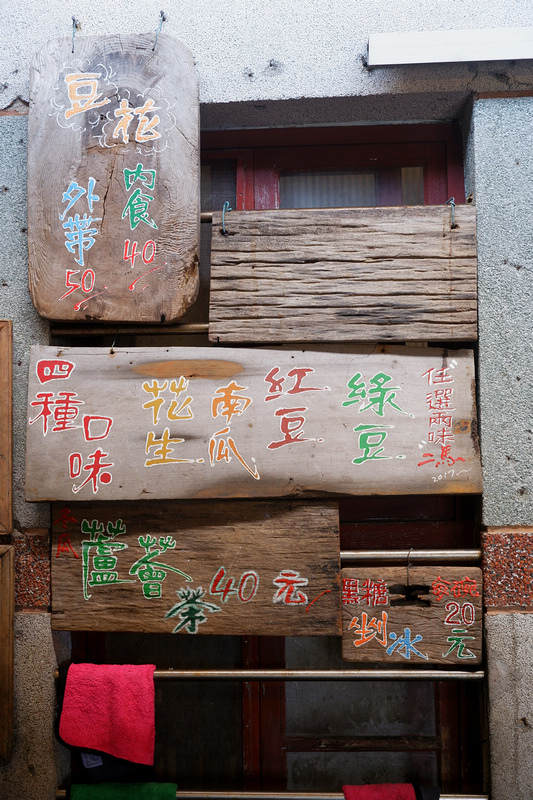 豆花
內食
40
外帶
50
四種
口味
花生
南瓜
紅豆
綠豆
任選兩味
2017
冬瓜
蘆薈茶
40元
黑糖
剉冰
20
元